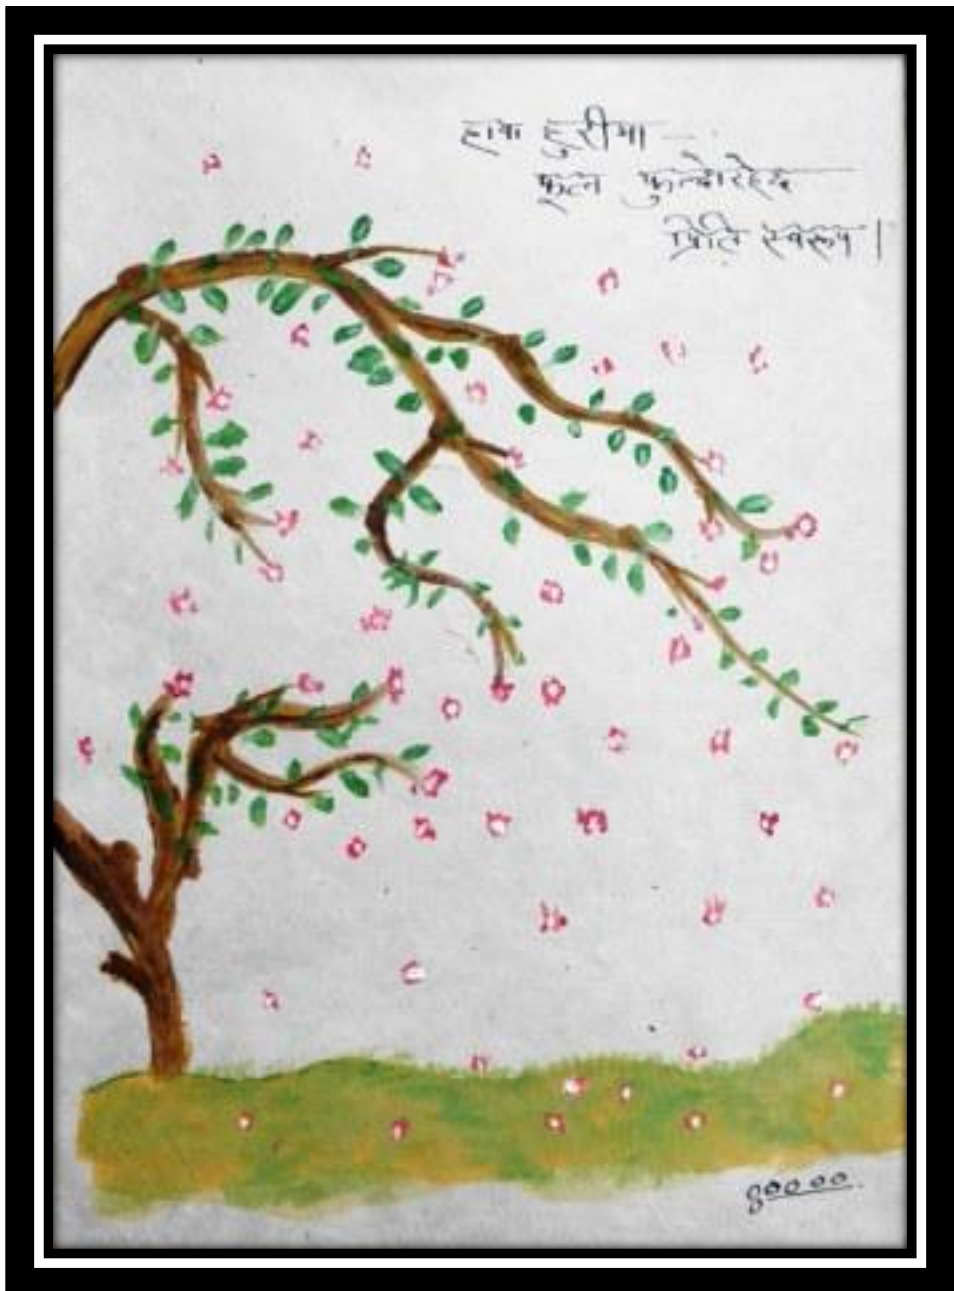 हावा हुरीमा —
फूल फुल्दोरहेछ
प्रिति स्वरूप ।